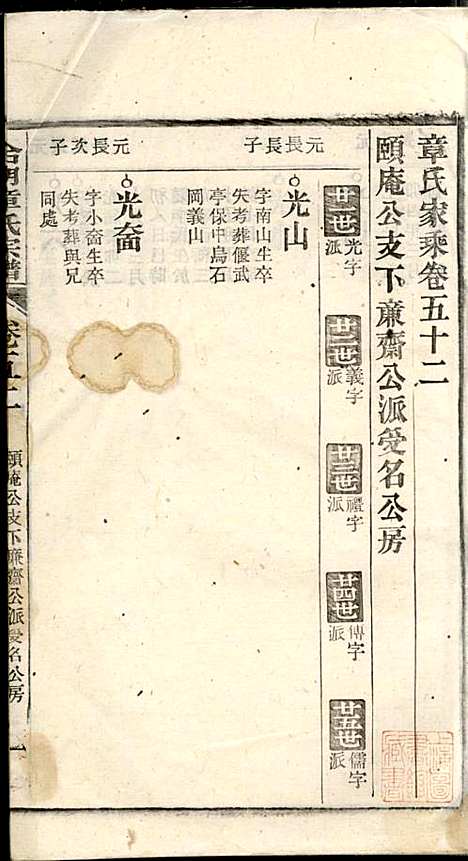 章氏家乘卷五十二
頤庵公支下亷齋公派受名公房
廿一世 光字派
廿二世 義字派
廿三世 禮字派
廿四世 傳字派
廿五世 儒字派
元長長子
光山
字南山生卒
失考葬偃武
亭保中烏石
岡義山
元長次子
光畬
字小畬生卒
失考葬與兄
同處
章氏宗譜
卷五十二
頤庵公支下亷齋公派受名公房
一